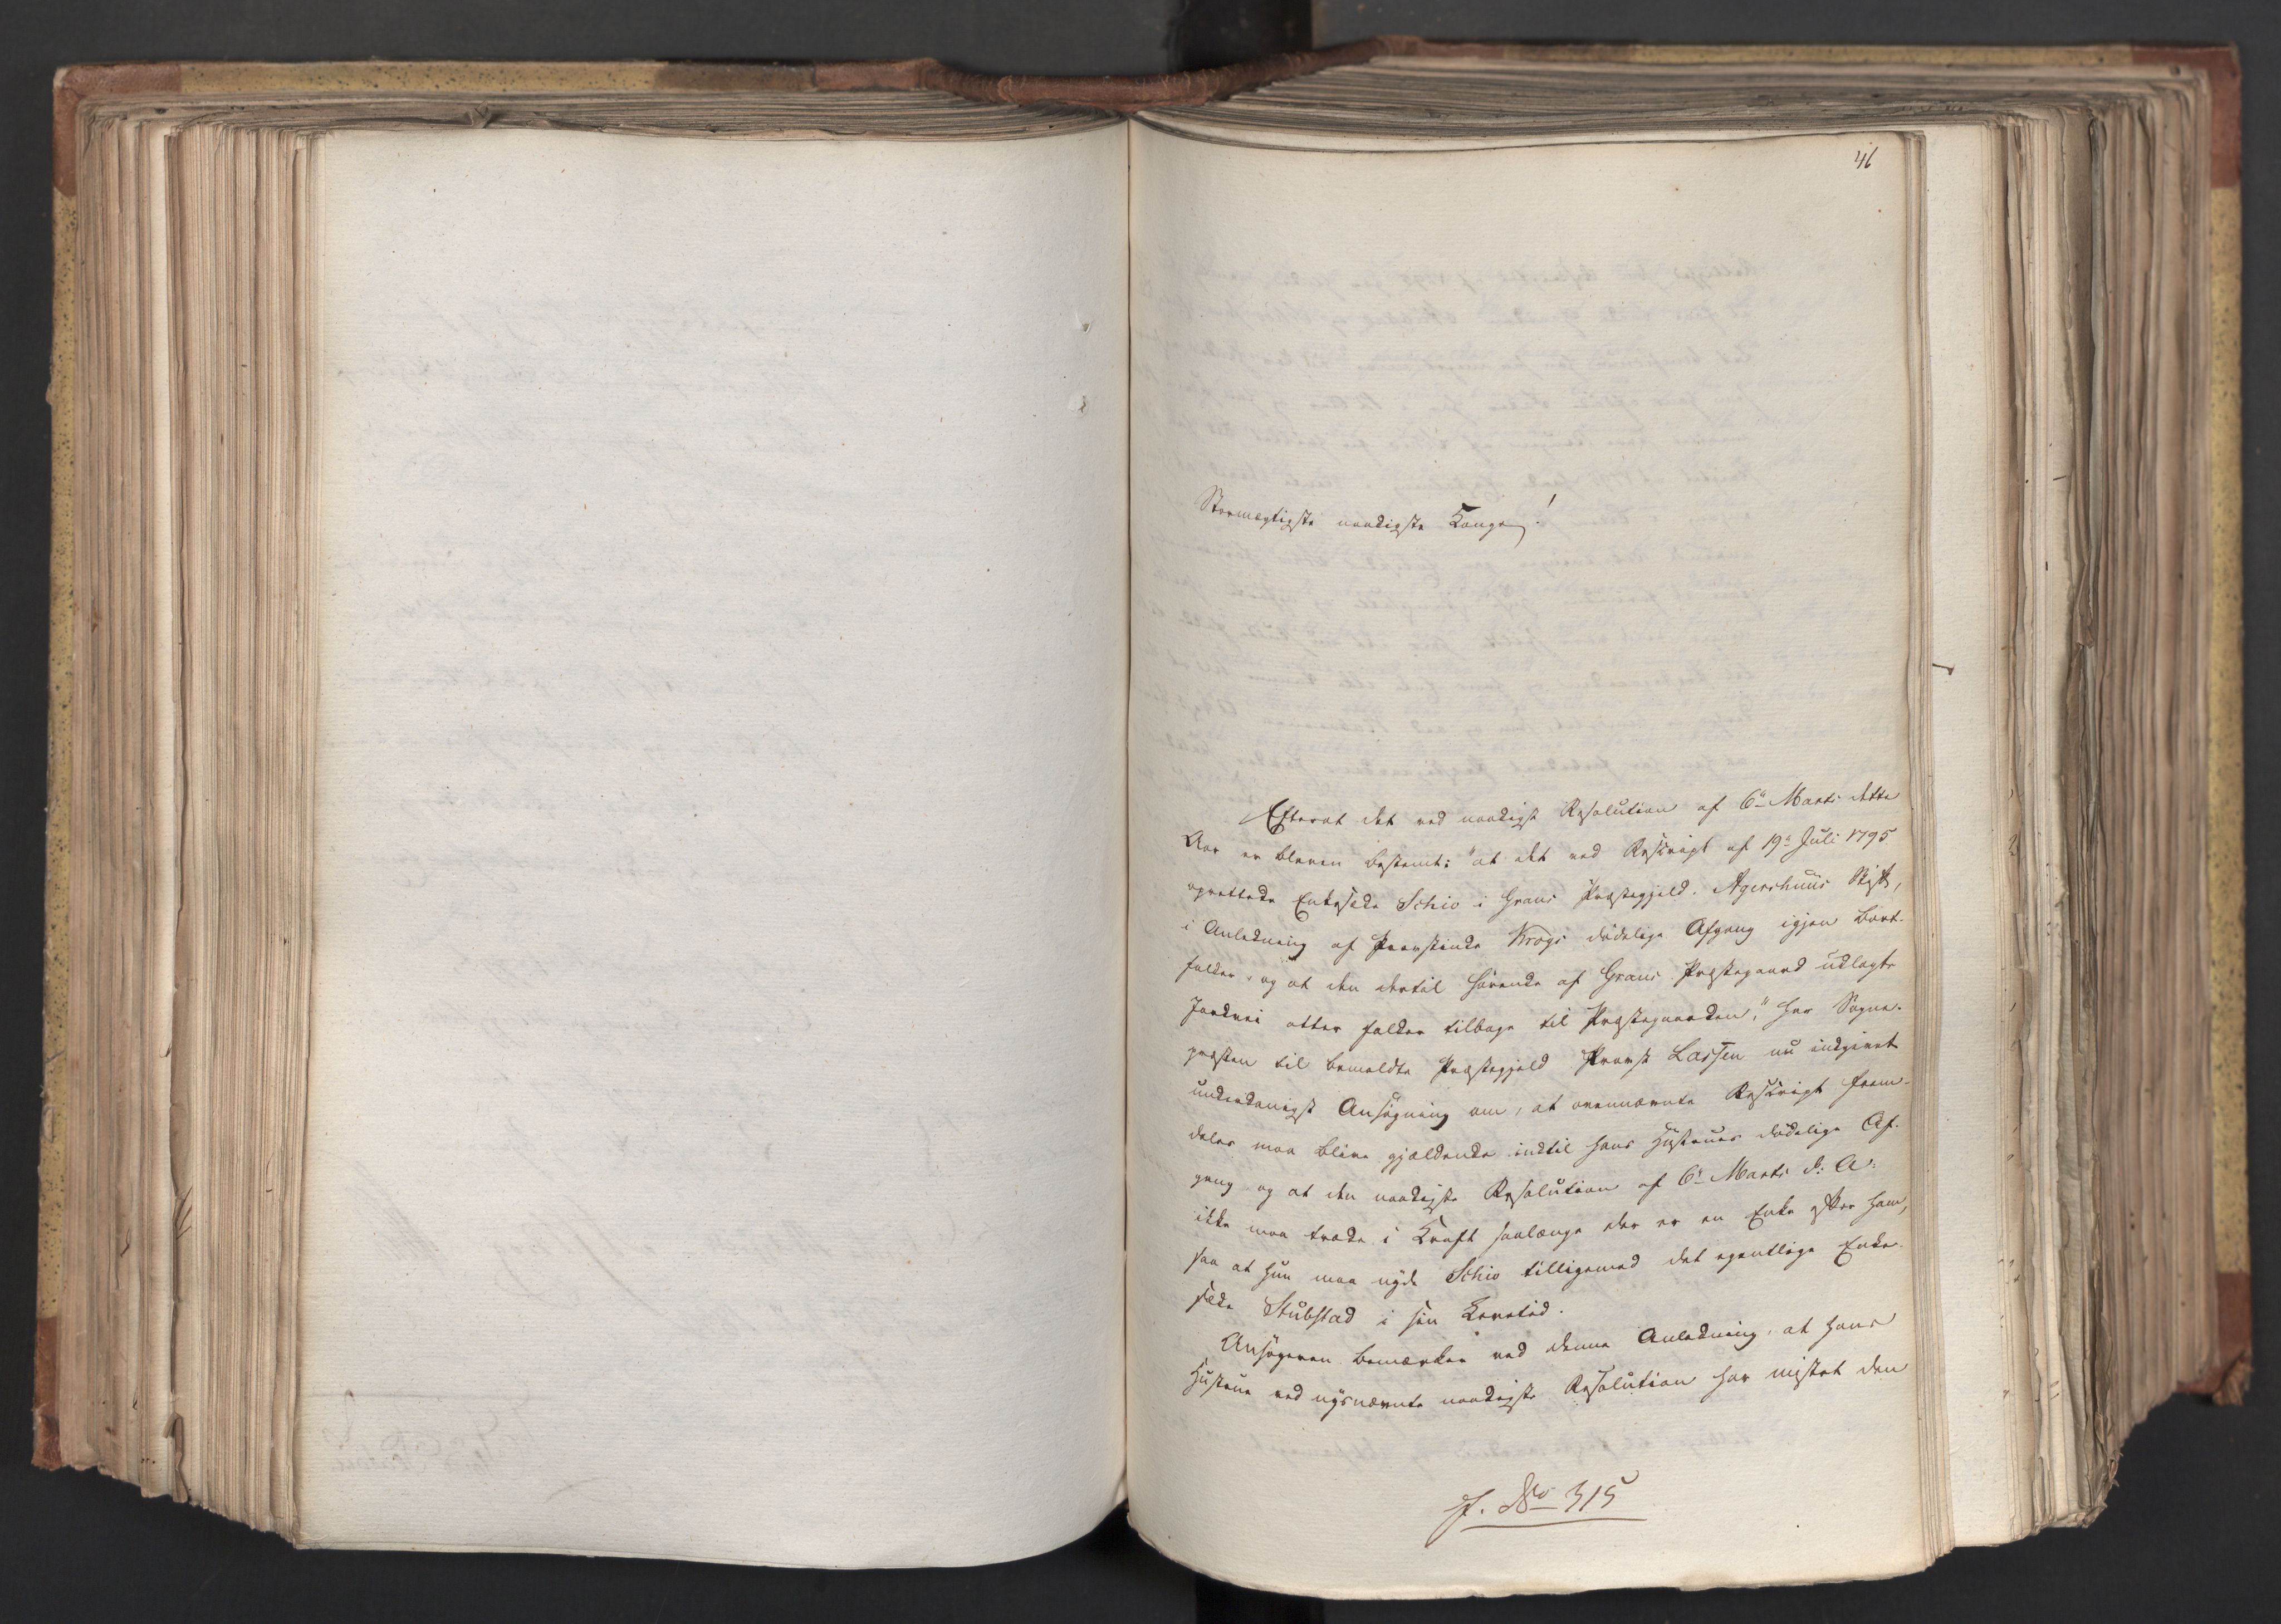 46
Stormægtigste naadigste Konge!
Efterat det ved naadigst Resolution af 6te Marts dette
Aar er bleven bestemt: "at det ved Rescript af 19de Juli 1795
oprettede Enkesæde Schio i Grans Præstegjeld, Agershuus Stift,
i Anledning af Provstinde Krogs dødelige Afgang igjen bort-
falder, og at den dertil hørende af Grans Præstegaard udlagte
Jordvei atter falder tilbage til Præstegaarden," har Sogne-
præsten til bemeldte Præstegjeld Provst Lassen nu indgivet
underdanigst Ansøgning om, at ovennævnte Rescript frem-
deles maa blive gjældende indtil hans Hustrues dødelige Af-
gang og at den naadigste Resolution af 6te Marts d: A:
ikke maa træde i Kraft saalænge der er en Enke efter ham,
saa at hun maa nyde Schio tilligemed det egentlige Enke-
sæde Stubstad i sin Levetid.
Ansøgeren bemærker ved denne Anledning, at hans
Hustrue ved nysnævnte naadigste Resolution har mistet den
J. No 315